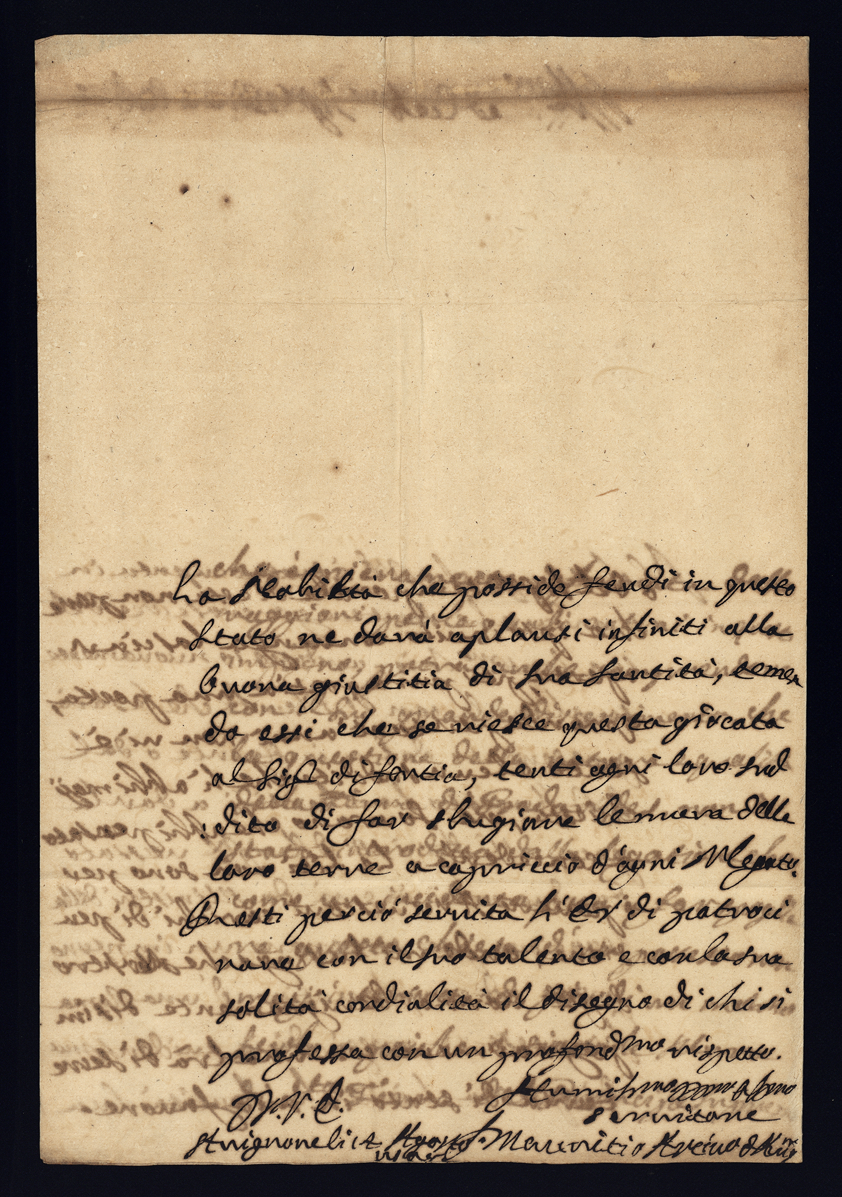 la Nobiltà che posside feudi in questo
stato ne darà aplausi infiniti alla
buona giustitia di sua santità, temen
do essi che se riesce questa giocata
al Sigr di fortia, tenti ogni loro sud
dito di far strugiare le mura delle
loro terre a capriccio d'ogni
Resti perciò servita di patroci
nare con il suo talento e con la sua
solita cordialità il disegno di chi si
professa con un profondmo rispetto.
servitore
li 14 Agosto Mauritio